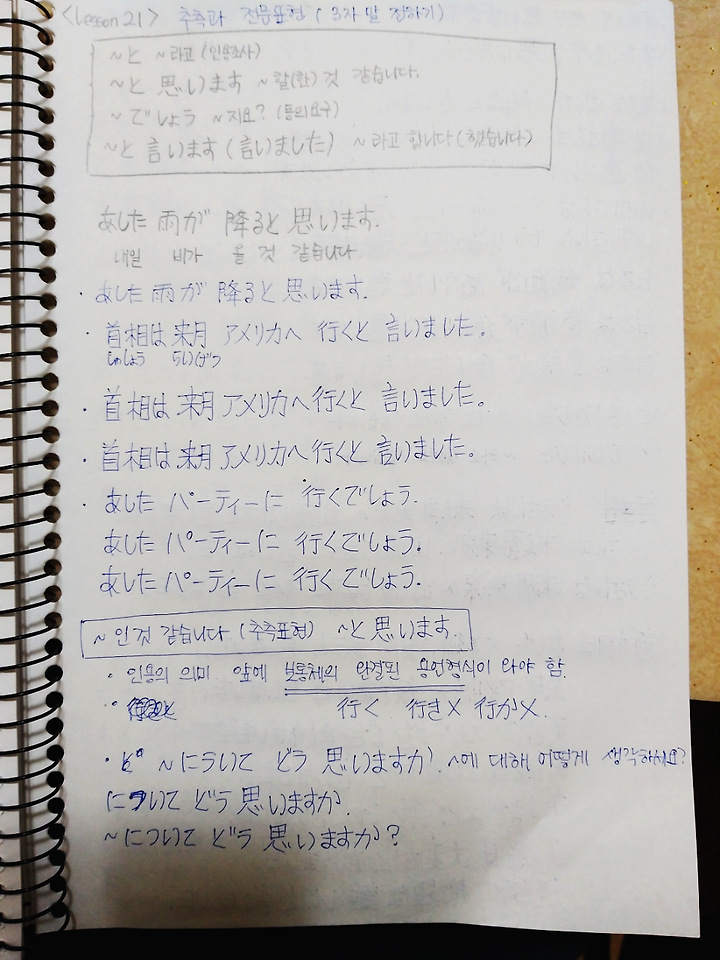 <Lesson 21> 추측과 전문표현 (3자 말 전하기)
~と ~라고 (인용조사)
~と 思います ~할(한) 것 같습니다.
~でしょう ~지요? (동의요구)
~と 言います (言いました) ~라고 합니다 (했습니다)
あした 雨が 降ると 思います.
내일 비가 올 것 같습니다
· あした 雨が 降ると 思います.
· 首相は 来月 アメリカへ 行くと 言いました。
しゅしょう らいげつ
· 首相は 来月 アメリカへ 行くと 言いました。
· 首相は 来月 アメリカへ 行くと 言いました。
· あした パーティーに 行くでしょう.
あした パーティーに 行くでしょう.
あした パーティーに 行くでしょう.
~인 것 같습니다 (추측표현) ~と 思います
· 인용의 의미 앞에 보통체의 완결된 용언형식이 와야 함.
· 行く 行き× 行か×.
· ど ~にういて どう 思いますか. ~에 대해 어떻게 생각하세요?
について どう 思いますか.
~について どう 思いますか?